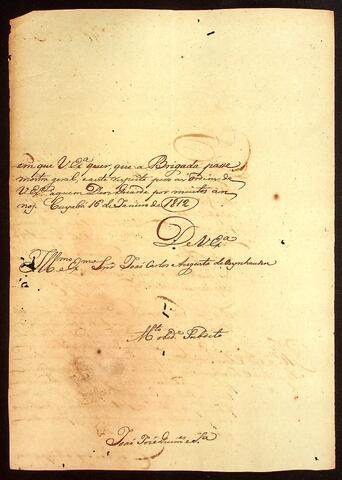 em que V Exª quer, que a Brigada passe
mostra geral, e a este respeito peço as Ordens de
V Exª aquem Deos Guarde por muitos an
nos. Cuyabá 16 de Janeiro de 1812
De V Exª
Illmo e Exmo Snr João Carlos Augusto de Oeynhausen
Mto obde Subdito
João José Guimes e Sª